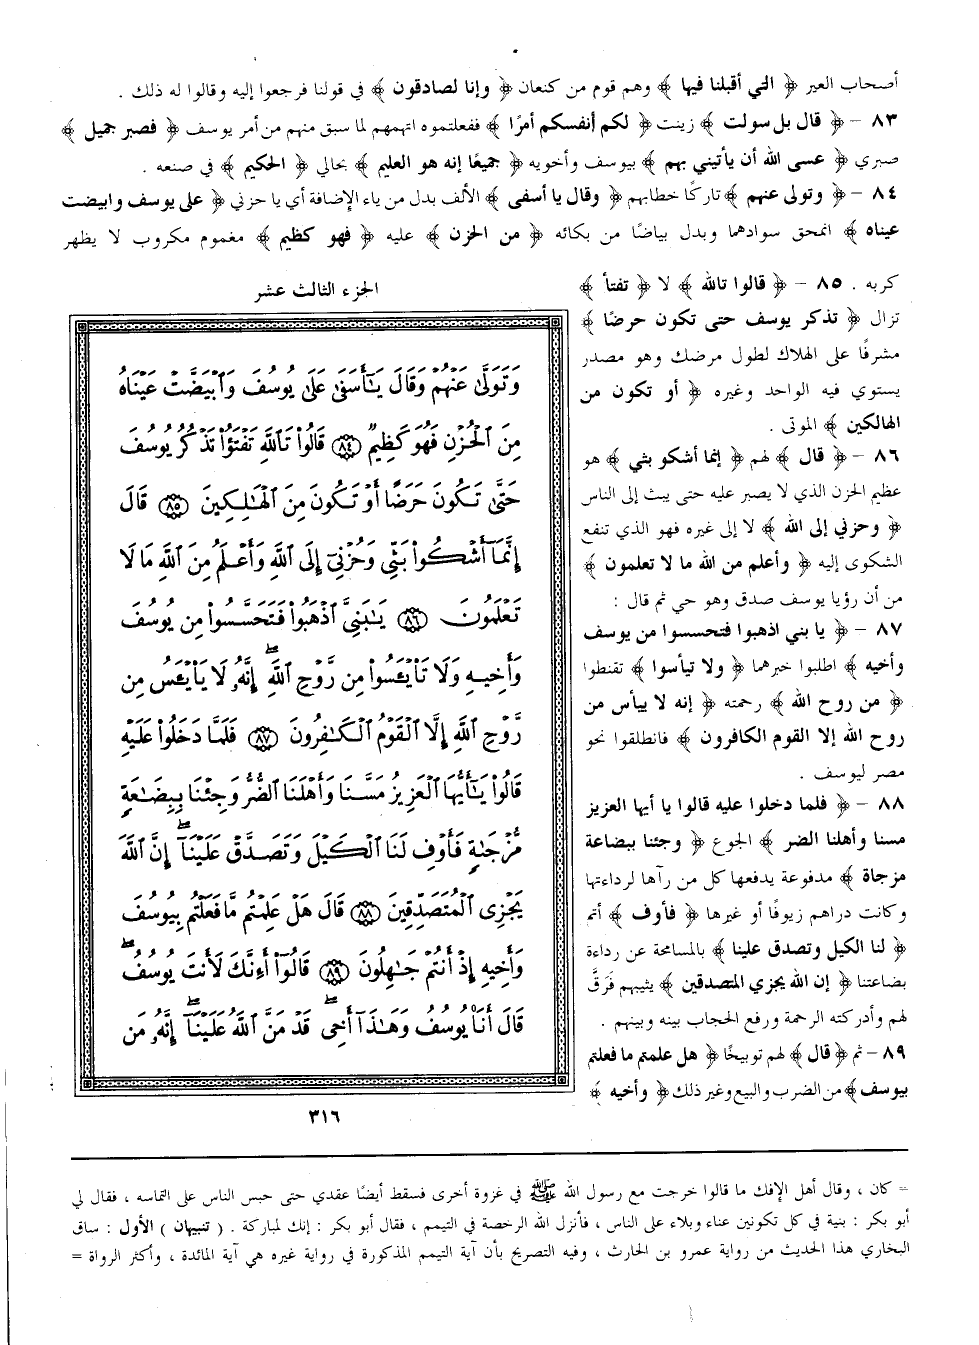 أصحاب العير ﴿ التي أقبلنا فيها ﴾ وهم قوم من كنعان ﴿ وإنا لصادقون ﴾ في قولنا فرجعوا إليه وقالوا له ذلك .
٨٣ – ﴿ قال بل سولت ﴾ زينت ﴿ لكم أنفسكم أمرًا ﴾ ففعلتموه اتهمهم لما سبق منهم من أمر يوسف ﴿ فصبر جميل ﴾
صبري ﴿ عسى الله أن يأتيني بهم ﴾ بيوسف وأخويه ﴿ جميعًا إنه هو العليم ﴾ بحالي ﴿ الحكيم ﴾ في صنعه .
٨٤ – ﴿ وتولى عنهم ﴾ تاركًا خطابهم ﴿ وقال يا أسفى ﴾ الألف بدل من ياء الإضافة أي يا حزني ﴿ على يوسف وابيضت
عيناه ﴾ انمحق سوادهما وبدل بياضًا من بكائه ﴿ من الحزن ﴾ عليه ﴿ فهو كظيم ﴾ مغموم مكروب لا يظهر
كربه . ٨٥ – ﴿ قالوا تالله ﴾ لا ﴿ تفتأ ﴾
تزال ﴿ تذكر يوسف حتى تكون حرضًا ﴾
مشرفًا على الهلاك لطول مرضك وهو مصدر
يستوي فيه الواحد وغيره ﴿ أو تكون من
الهالكين ﴾ الموتى .
٨٦ – ﴿ قال ﴾ لهم ﴿ إنما أشكو بثي ﴾ هو
عظيم الحزن الذي لا يصبر عليه حتى يبث إلى الناس
﴿ وحزني إلى الله ﴾ لا إلى غيره فهو الذي تنفع
الشكوى إليه ﴿ وأعلم من الله ما لا تعلمون ﴾
من أن رؤيا يوسف صدق وهو حي ثم قال :
٨٧ – ﴿ يا بني اذهبوا فتحسسوا من يوسف
وأخيه ﴾ اطلبوا خبرهما ﴿ ولا تيأسوا ﴾ تقنطوا
﴿ من روح الله ﴾ رحمته ﴿ إنه لا ييأس من
روح الله إلا القوم الكافرون ﴾ فانطلقوا نحو
مصر ليوسف .
٨٨ – ﴿ فلما دخلوا عليه قالوا يا أيها العزيز
مسنا وأهلنا الضر ﴾ الجوع ﴿ وجئنا ببضاعة
مزجاة ﴾ مدفوعة يدفعها كل من رآها لرداءتها
وكانت دراهم زيوفًا أو غيرها ﴿ فأوف ﴾ أتم
﴿ لنا الكيل وتصدق علينا ﴾ بالمسامحة عن رداءة
بضاعتنا ﴿ إن الله يجزي المتصدقين ﴾ يثيبهم فَرَقَّ
لهم وأدركته الرحمة ورفع الحجاب بينه وبينهم .
٨٩ – ثم ﴿ قال ﴾ لهم توبيخًا ﴿ هل علمتم ما فعلتم
بيوسف ﴾ من الضرب والبيع وغير ذلك ﴿ وأخيه ﴾
الجزء الثالث عشر
وَتَوَلَّىٰ عَنْهُمْ وَقَالَ يَـٰٓأَسَفَىٰ عَلَىٰ يُوسُفَ وَٱبْيَضَّتْ عَيْنَاهُ
مِنَ ٱلْحُزْنِ فَهُوَ كَظِيمٌ ﴿٨٤﴾ قَالُوا۟ تَٱللَّهِ تَفْتَؤُا۟ تَذْكُرُ يُوسُفَ
حَتَّىٰ تَكُونَ حَرَضًا أَوْ تَكُونَ مِنَ ٱلْهَـٰلِكِينَ ﴿٨٥﴾ قَالَ
إِنَّمَآ أَشْكُوا۟ بَثِّى وَحُزْنِىٓ إِلَى ٱللَّهِ وَأَعْلَمُ مِنَ ٱللَّهِ مَا لَا
تَعْلَمُونَ ﴿٨٦﴾ يَـٰبَنِىَّ ٱذْهَبُوا۟ فَتَحَسَّسُوا۟ مِن يُوسُفَ
وَأَخِيهِ وَلَا تَا۟يْـَٔسُوا۟ مِن رَّوْحِ ٱللَّهِ ۖ إِنَّهُۥ لَا يَا۟يْـَٔسُ مِن
رَّوْحِ ٱللَّهِ إِلَّا ٱلْقَوْمُ ٱلْكَـٰفِرُونَ ﴿٨٧﴾ فَلَمَّا دَخَلُوا۟ عَلَيْهِ
قَالُوا۟ يَـٰٓأَيُّهَا ٱلْعَزِيزُ مَسَّنَا وَأَهْلَنَا ٱلضُّرُّ وَجِئْنَا بِبِضَـٰعَةٍ
مُّزْجَىٰةٍ فَأَوْفِ لَنَا ٱلْكَيْلَ وَتَصَدَّقْ عَلَيْنَآ ۖ إِنَّ ٱللَّهَ
يَجْزِى ٱلْمُتَصَدِّقِينَ ﴿٨٨﴾ قَالَ هَلْ عَلِمْتُم مَّا فَعَلْتُم بِيُوسُفَ
وَأَخِيهِ إِذْ أَنتُمْ جَـٰهِلُونَ ﴿٨٩﴾ قَالُوٓا۟ أَءِنَّكَ لَأَنتَ يُوسُفُ ۖ
قَالَ أَنَا۠ يُوسُفُ وَهَـٰذَآ أَخِى ۖ قَدْ مَنَّ ٱللَّهُ عَلَيْنَآ ۖ إِنَّهُۥ مَن
٣١٦
= كان ، وقال أهل الإفك ما قالوا خرجت مع رسول الله ﷺ في غزوة أخرى فسقط أيضًا عقدي حتى حبس الناس على التماسه ، فقال لي
أبو بكر : بنية في كل تكونين عناء وبلاء على الناس ، فأنزل الله الرخصة في التيمم ، فقال أبو بكر : إنك لمباركة . ( تنبيهان ) الأول : ساق
البخاري هذا الحديث من رواية عمرو بن الحارث ، وفيه التصريح بأن آية التيمم المذكورة في رواية غيره هي آية المائدة ، وأكثر الرواة =